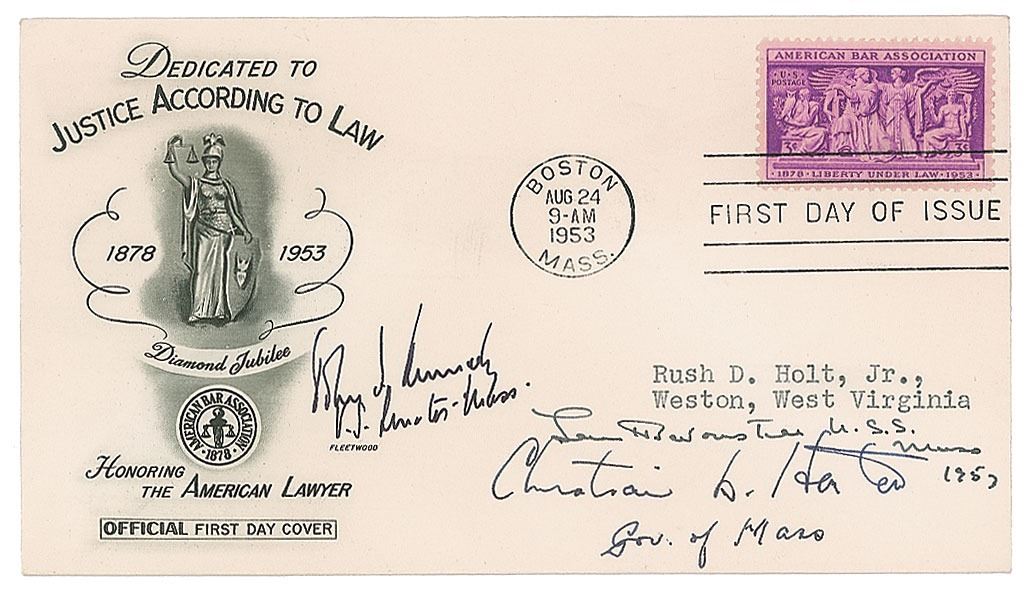 DEDICATED TO
JUSTICE ACCORDING TO LAW
1878 1953
Diamond Jubilee
AMERICAN BAR ASSOCIATION
· 1878 ·
HONORING
THE AMERICAN LAWYER
OFFICIAL FIRST DAY COVER
FLEETWOOD
Kennedy
U.S. Senator - Mass.
BOSTON
AUG 24
9-AM
1953
MASS.
AMERICAN BAR ASSOCIATION
· U·S·
POSTAGE
3¢ 3¢
· 1878 · LIBERTY UNDER LAW · 1953 ·
FIRST DAY OF ISSUE
Rush D. Holt, Jr.,
Weston, West Virginia
U.S.S.
Mass
1953
Christian A. Herter
Gov. of Mass